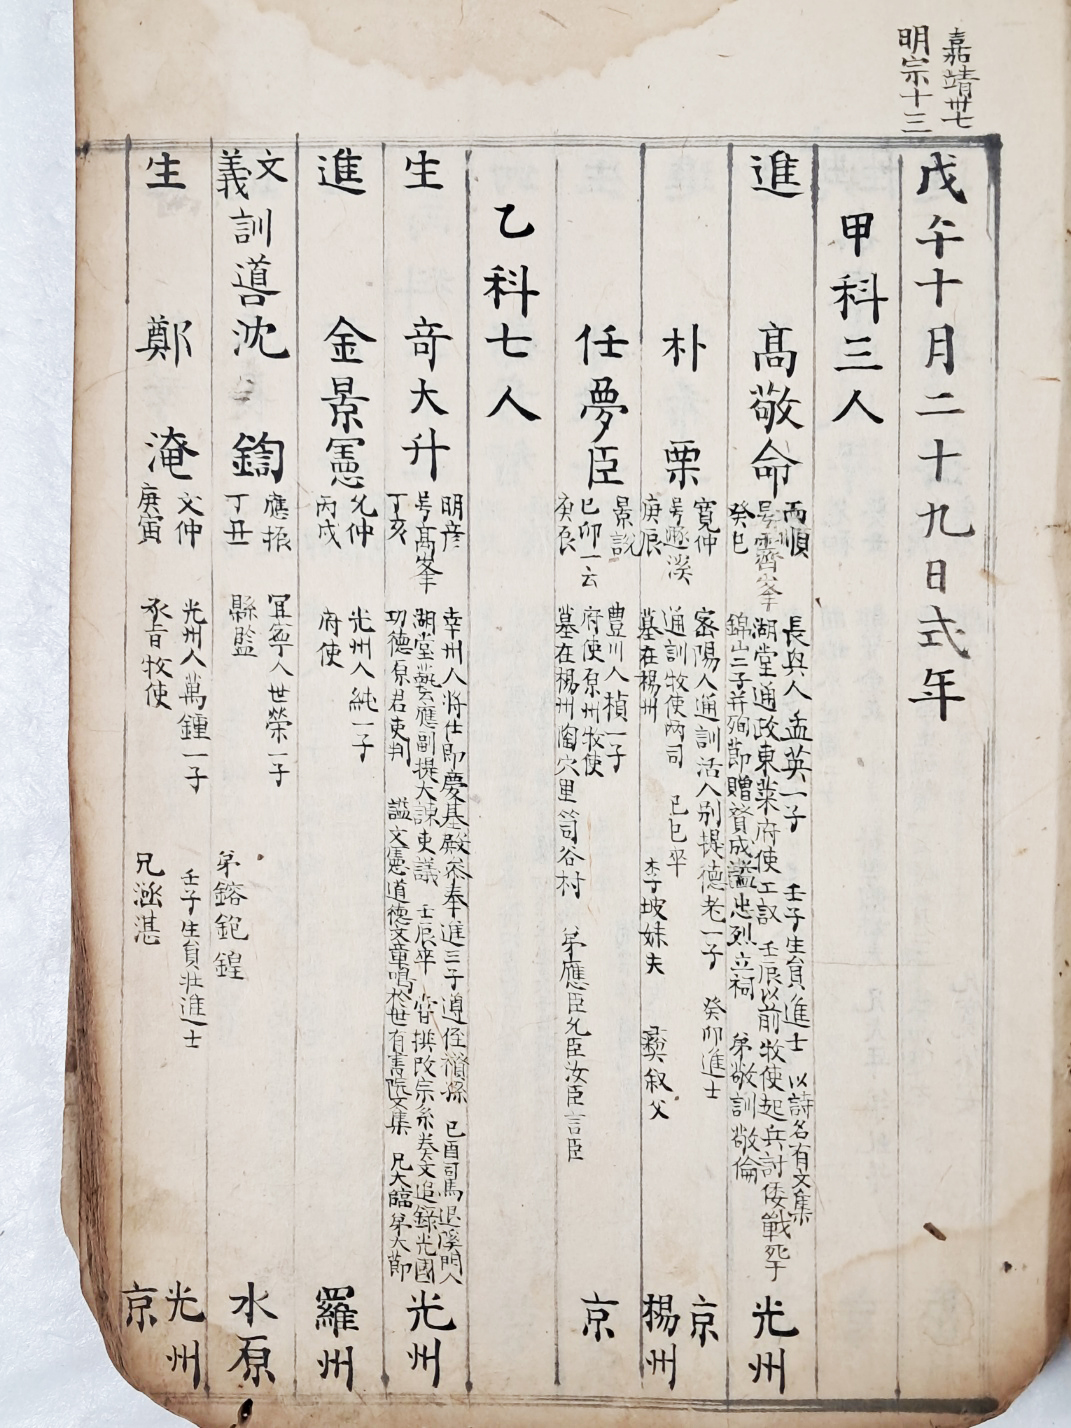 嘉靖卅七
明宗十三
戊午十月二十九日式年
甲科三人
進 高敬命
而順
号霽峯
癸巳
長興人孟英一子 壬子生員進士 以詩名有文集
湖堂通政東萊府使工議 壬辰以前牧使起兵討倭戰死于
錦山二子并殉節贈贊成謚忠烈立祠 弟敬訓敬倫
光州
朴栗
寬仲
号遯溪
庚辰
密陽人通訓活人別提德老一子 癸卯進士
通訓牧使兩司 己巳卒
墓在楊州 李坡妹夫 彛叙父
京
楊州
任夢臣
景說
己卯一云
庚辰
豊川人楨一子
府使原州牧使
墓在楊州陶穴里筒谷村 弟應臣允臣汝臣言臣
京
乙科七人
生 奇大升
明彦
号高峯
丁亥
幸州人將仕郎慶基殿參奉進三子遵侄襸孫 己酉司馬退溪門人
湖堂藝應副提大諫吏議 壬辰卒 昔撰改宗系奏文追錄光國
功德原君吏判 謚文憲道德文章鳴於世有書院文集 兄大臨弟大節
光州
進 金景憲
允仲
丙戌
光州人純一子
府使
羅州
文義訓導沈鋾
應振
丁丑
冝寧人世榮一子
縣監
弟鎔鉋鍠
水原
生 鄭淹
文仲
庚寅
光州人萬鍾一子 壬子生員壯進士
承旨牧使
兄涵湛
光州
京